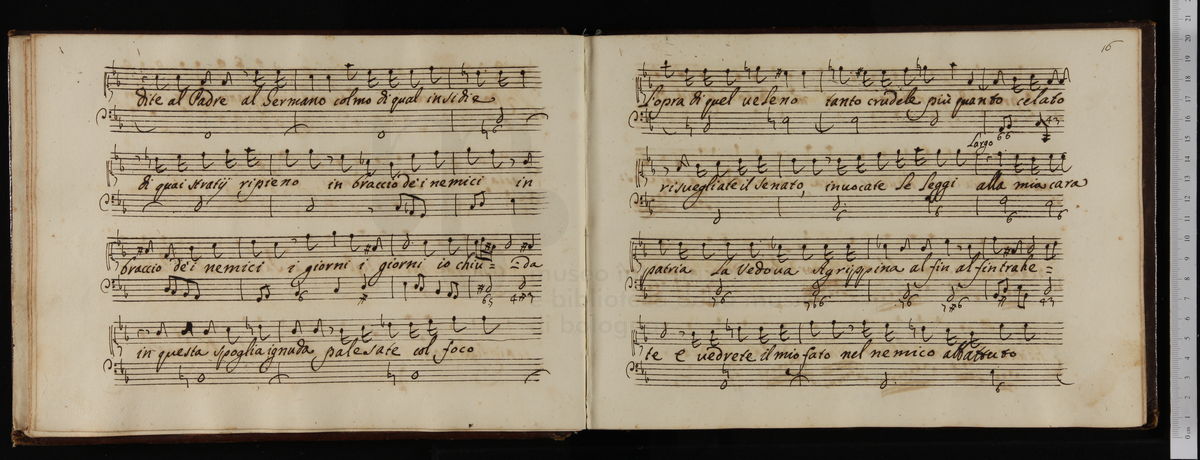 dite al Padre al Germano colmo di qual insidie
di quai stratij ripieno in braccio de i nemici in
braccio de i nemici i giorni i giorni io chiu = da
in questa spoglia ignuda palesate col foco
16
sopra di quel ueleno tanto crudele più quanto celato
Largo
risuegliate il Senato, inuocate le leggi alla mia cara
patria la Vedoua Agrippina al fin al fin trahe =
te e vedrete il mio fato nel nemico abbattuto